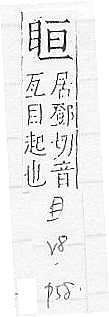 居鄧切音
亙目起也
目
V8
p58.